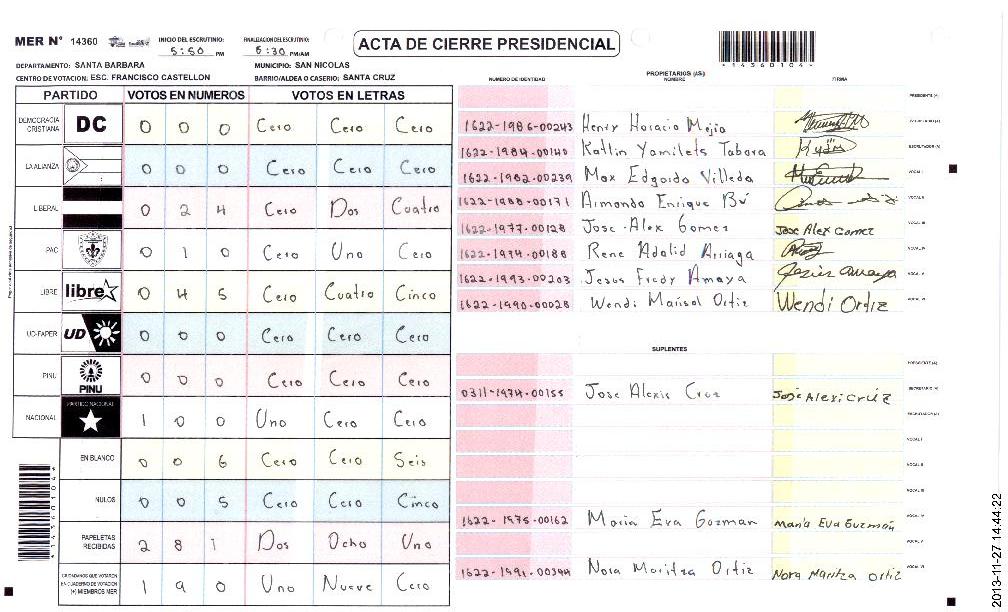 MER N° 14360 INICIO DEL ESCRUTINIO: 5:50 PM FINALIZACION DEL ESCRUTINIO: 6:30 PM/AM
ACTA DE CIERRE PRESIDENCIAL
*14360104*
DEPARTAMENTO: SANTA BARBARA MUNICIPIO: SAN NICOLAS
CENTRO DE VOTACION: ESC. FRANCISCO CASTELLON BARRIO/ALDEA O CASERIO: SANTA CRUZ
PARTIDO VOTOS EN NUMEROS VOTOS EN LETRAS
DEMOCRACIA CRISTIANA DC 0 0 0 Cero Cero Cero
LA ALIANZA 0 0 0 Cero Cero Cero
LIBERAL 0 2 4 Cero Dos Cuatro
PAC 0 1 0 Cero Uno Cero
LIBRE libre 0 4 5 Cero Cuatro Cinco
UD-FAPER UD 0 0 0 Cero Cero Cero
PINU PINU 0 0 0 Cero Cero Cero
NACIONAL PARTIDO NACIONAL 1 0 0 Uno Cero Cero
EN BLANCO 0 0 6 Cero Cero Seis
NULOS 0 0 5 Cero Cero Cinco
PAPELETAS RECIBIDAS 2 8 1 Dos Ocho Uno
CIUDADANOS QUE VOTARON EN CUADERNO DE VOTACION (+) MIEMBROS MER 1 9 0 Uno Nueve Cero
*14360104*
PROPIETARIOS (AS)
NUMERO DE IDENTIDAD NOMBRE FIRMA
PRESIDENTE (A)
1622-1986-00243 Henry Horacio Mejia SECRETARIO (A)
1622-1984-00140 Katlin Yamilets Tabora ESCRUTADOR (A)
1622-1982-00239 Max Edgardo Villeda VOCAL I
1622-1988-00171 Armando Enrique Bú VOCAL II
1622-1977-00128 Jose Alex Gomez Jose Alex Gomez VOCAL III
1622-1974-00188 Rene Adalid Arriaga VOCAL IV
1622-1993-00203 Jesus Fredy Amaya VOCAL V
1622-1990-00028 Wendi Marisol Ortiz Wendi Ortiz VOCAL VI
SUPLENTES
PRESIDENTE (A)
0311-1974-00155 Jose Alexis Cruz Jose Alexi Crúz SECRETARIO (A)
ESCRUTADOR (A)
VOCAL I
VOCAL II
VOCAL III
1622-1975-00162 Maria Eva Gozman maria Eva Guzmán VOCAL IV
VOCAL V
1622-1991-00394 Nora Maritza Ortiz Nora Maritza Ortiz VOCAL VI
2013-11-27 14:44:22